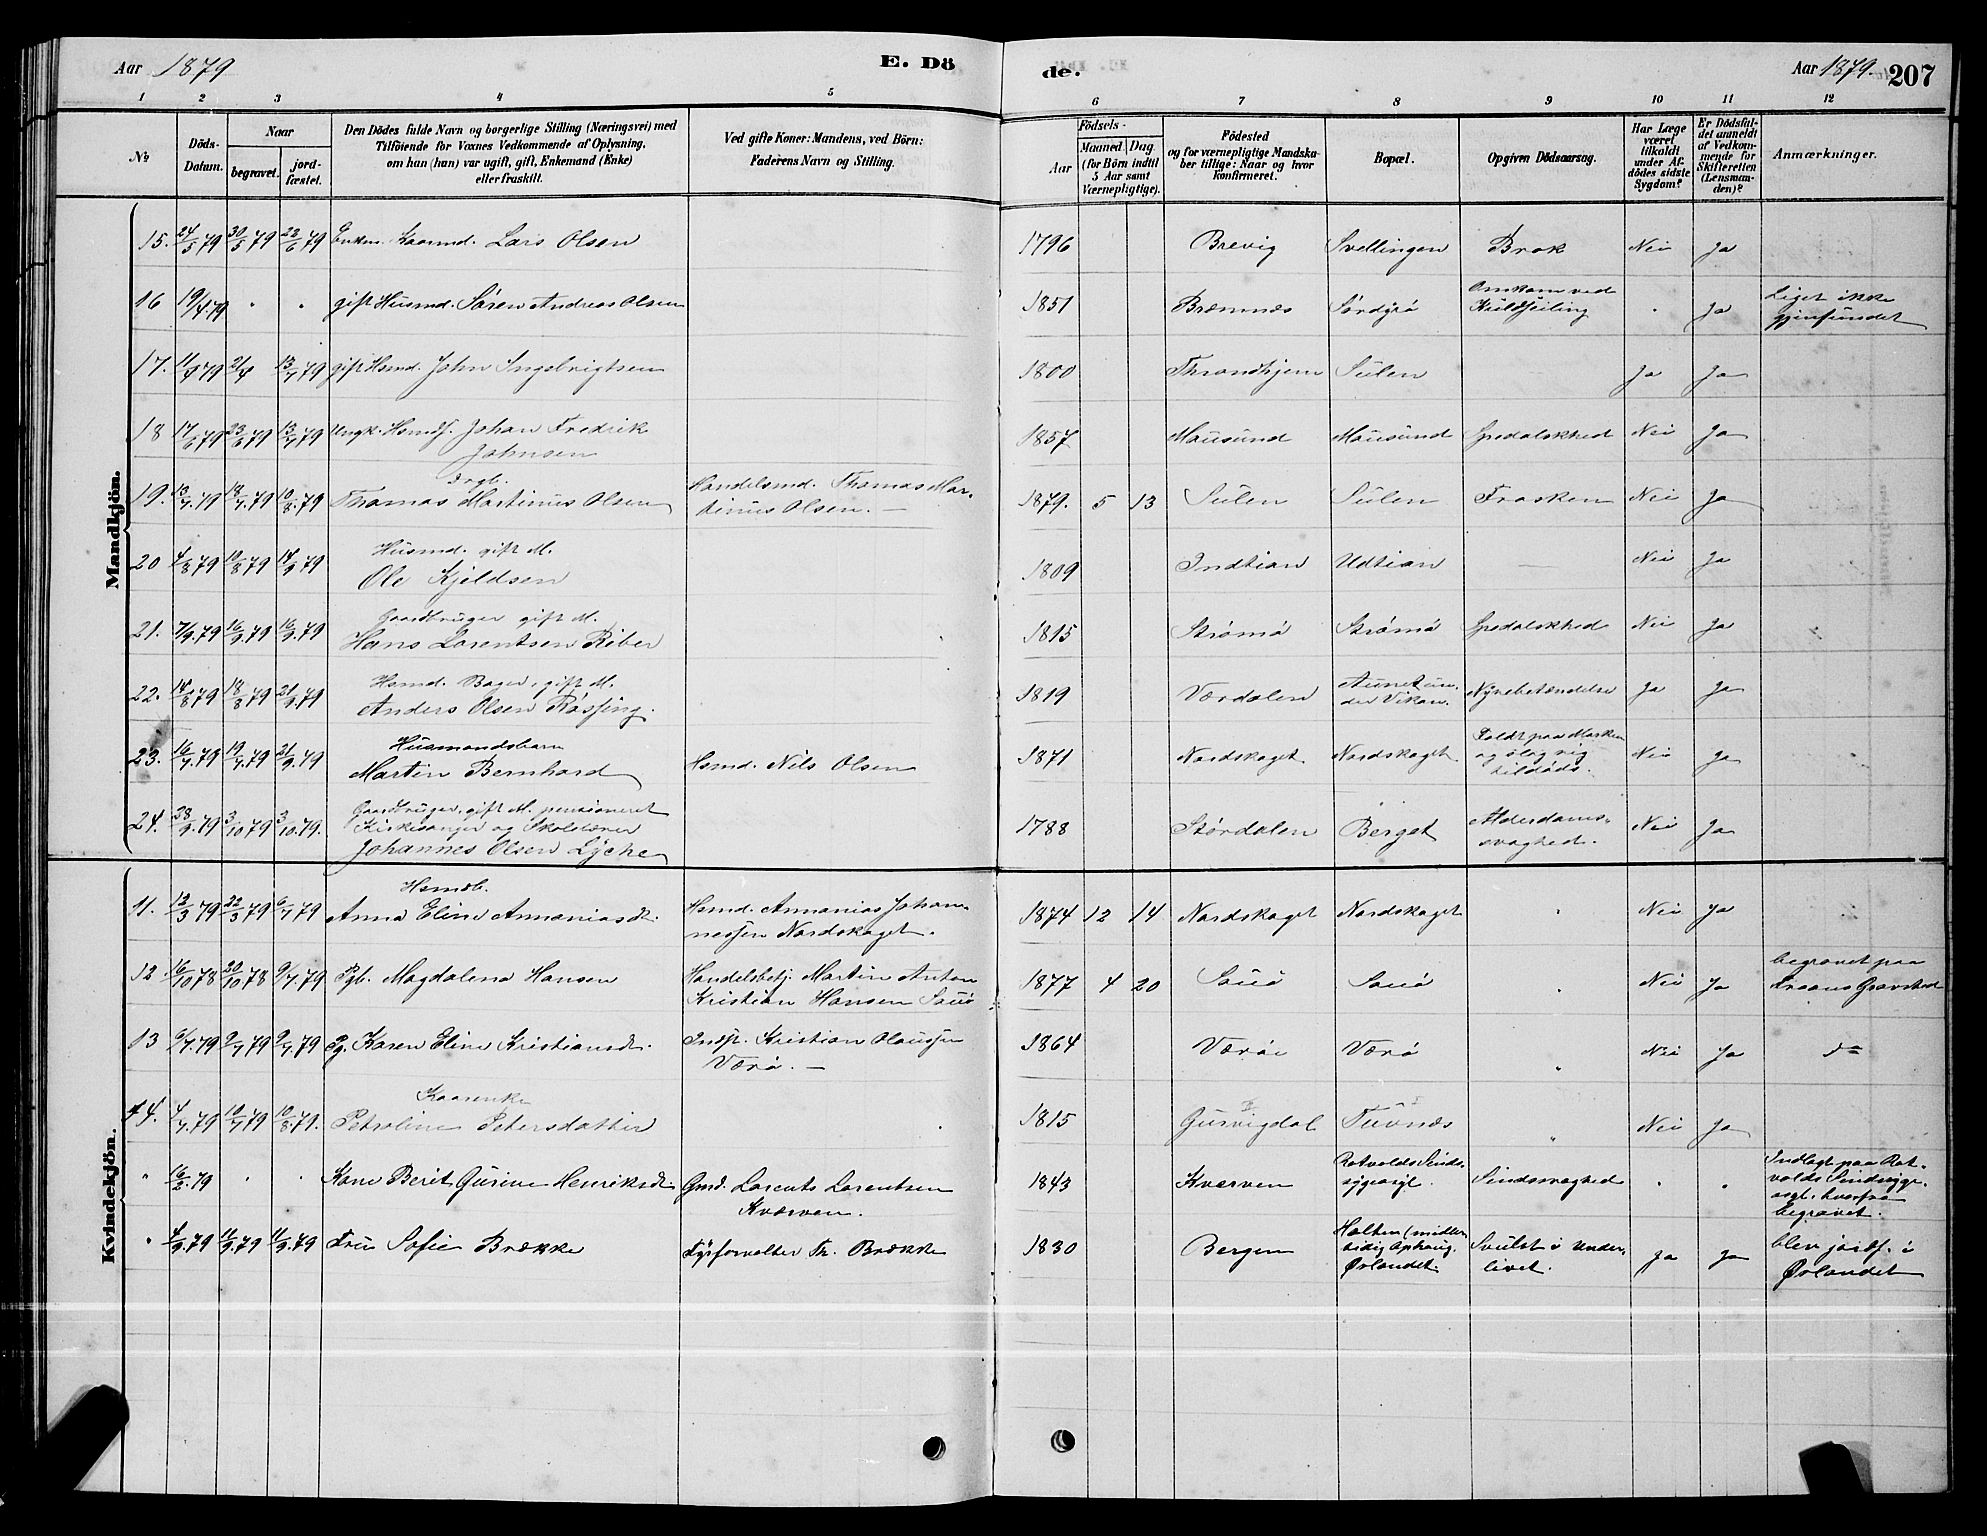 Aar 1879
E. Dö
de.
Aar 1879. 207
1 2 3 4 5 6 7 8 9 10 11 12
№
Döds-Datum.
Naar
begravet.
jord-fæstet.
Den Dödes fulde Navn og borgerlige Stilling (Næringsvei) med
Tilföiende for Voxnes Vedkommende af Oplysning,
om han (hun) var ugift, gift, Enkemand (Enke)
eller fraskilt.
Ved gifte Koner: Mandens, ved Börn:
Faderens Navn og Stilling.
Födsels-
Aar
Maaned Dag
(for Börn indtil
5 Aar samt
Værnepligtige).
Födested
og for værnepligtige Mandska-
ber tillige: Naar og hvor
konfirmeret.
Bopæl.
Opgiven Dödsaarsag.
Har Læge
været
tilkaldt
under Af-
dödes sidste
Sygdom?
Er Dödsfal-
det anmeldt
af Vedkom-
mende for
Skifteretten
(Lensman-
den)?
Anmærkninger.
Mandkjön.
15. 24/5 79 30/5 79 22/6 79 Enkm. Kaarmd. Lars Olsen 1796 Brevig Svellingen Brok Nei Ja
16 19/4 79 " " gift Husmd. Sören Andreas Olsen 1851 Bremnæs Sördyrö Omkom ved Kuldseiling " Ja Liget ikke gjenfundet
17. 11/4 79 21/4 13/7 79 gift Hsmd. John Ingebrigtsen 1800 Throndhjem Sulen Ja Ja
18 17/6 79 23/6 79 13/7 79 Ungk. Hsmds. Johan Fredrik
Johnsen 1857 Mausund Mausund Spedalskhed Nei Ja
19. 13/7 79 18/7 79 10/8 79 Thomas Martinus Olsen Handelsmd. Thomas Mar-
tinus Olsen. 1879. 5 13 Sulen Sulen Frosken Nei Ja
20 4/8 79 10/8 79 14/9 79 Husmd. gift M.
Ole Kjeldsen 1809 Indtian Udtian — Nei Ja
21. 7/9 79 16/9 79 16/9 79 Gaardbruger gift M.
Hans Lorentsen Riber 1815 Strömö Strömö Spedalskhed Nei Ja
22. 14/8 79 18/8 79 21/9 79 Hsmd. Bager, gift M.
Anders Olsen Røssing. 1819 Værdalen Aunet un-
der Vikan. Nyrebetændelse Ja Ja
23. 16/7 79 19/7 79 21/9 79 Husmandsbarn
Martin Bernhard Hsmd. Nils Olsen 1871 Nordskaget Nordskaget Faldt paa Marken
og slog sig
tildöds. Nei Ja
24. 28/9 79 3/10 79 3/10 79. Gaardbruger, gift M. pensioneret
Kirkesanger og Skolelærer
Johannes Olsen Lyche 1788 Stördalen Berget Alderdoms-
svaghed. Nei Ja
Kvindekjön.
11. 12/3 79 22/3 79 6/7 79 Hsmdb.
Anna Eline Annaniasdt. Hsmd. Annanias Johan-
nessen Nordskaget. 1874 12 14 Nordskaget Nordskaget " Nei Ja
12 16/10 78 20/10 78 9/7 79 Pgb. Magdalena Hansen Handelsbetj. Martin Anton
Kristian Hansen Sauö 1877 4 20 Sauö Sauö " Nei Ja begravet paa
Gravsted
13 6/7 79 9/7 79 9/7 79 Pg. Karen Eline Kristiansdt. Indsp. Kristian Olaussen
Værö. — 1864 Værö Værö " Nei Ja do
14. 4/7 79 10/7 79 10/8 79. Kaarenke
Petroline Petersdatter 1815 Gurvigdal Tuvnæs " Nei Ja
" 16/2 79 " " Kone Berit Gurine Henriksdt. Gmd. Lorents Lorentsen
Kværven. 1843 Kværven Rotvolds Sinds-
sygeasyl. Sindssvaghed " " Indlagt paa Rot-
volds Sindssyge-
asyl, hvorfra
begravet.
" 4/9 79 11/9 79 11/9 79 Fru Sofie Brække Fyrforvalter Th. Brække 1830 Bergen Halten (midler-
tidig Ophaug,
Ørlandet Svulst i Under-
livet. Ja Ja blev jordf. i
Ørlandet